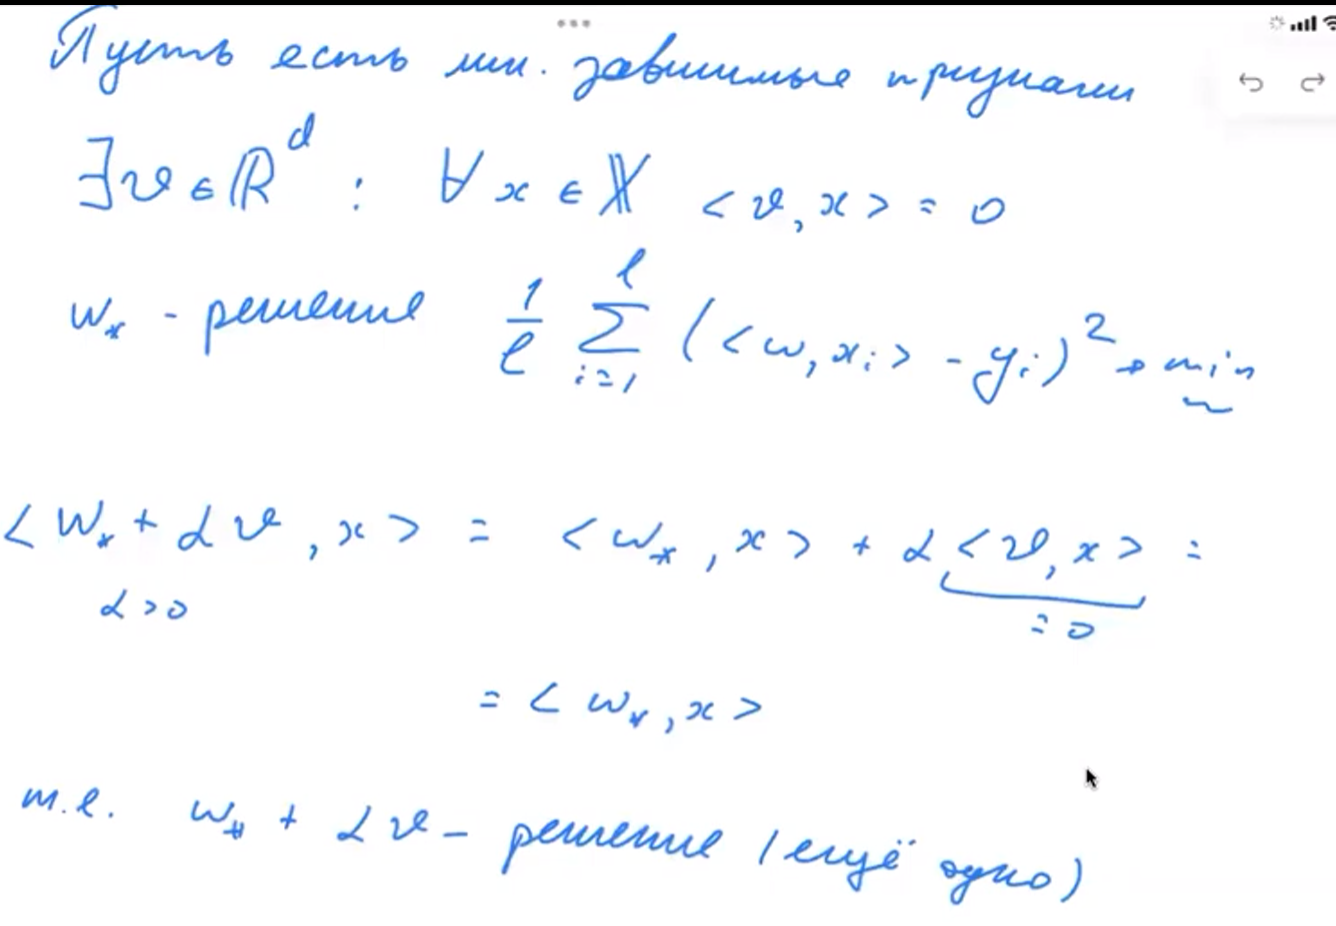 Пусть есть лин. зависимые признаки
∃ v ∈ ℝ^d : ∀ x ∈ 𝕏 <v, x> = 0
w_* - решение 1/ℓ ∑_{i=1}^{ℓ} (<w, x_i> - y_i)^2 → min_w
<w_* + αv, x> = <w_*, x> + α<v, x> =
α > 0
= 0
= <w_*, x>
т.е. w_* + αv – решение (ещё одно)